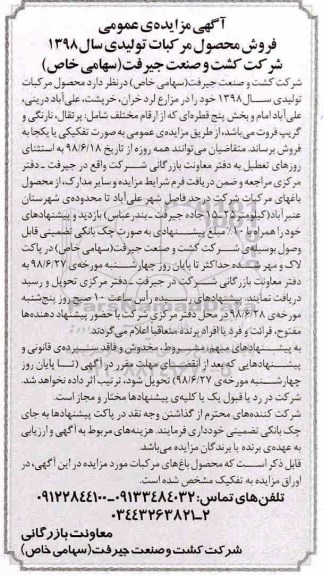 آگهی مزایده‌ی عمومی
فروش محصول مرکبات تولیدی سال ۱۳۹۸
شرکت کشت و صنعت جیرفت(سهامی خاص)
شرکت کشت و صنعت جیرفت(سهامی خاص) درنظر دارد محصول مرکبات
تولیدی ســـال ۱۳۹۸ خود را در مزارع لرد خران، خرپشت، علی‌آباد درینی،
علی‌آباد امام و بخش پنج قطره‌ای که از ارقام مختلف شامل: پرتقال، نارنگی و
گریپ فروت می‌باشد، از طریق مزایده‌ی عمومی به صورت تفکیکی یا یکجا به
فروش برساند. متقاضیان می‌توانند همه روزه از تاریخ ۹۸/۶/۱۸ به استثنای
روزهای تعطیل به دفتر معاونت بازرگانی شرکت واقع در جیرفت ـ دفتر
مرکزی مراجعه و ضمن دریافت فرم شرایط مزایده و سایر مدارک، از محصول
باغهای مرکبات شرکت در حد فاصل شهر علی‌آباد تا محدوده‌ی شهرستان
عنبرآباد(کیلومتر ۲۵ـ۱۵ جاده جیرفت ـ بندرعباس) بازدید و پیشنهادهای
خود را همراه با ۱۰٪ مبلغ پیشــنهادی به صورت چک بانکی تضمینی قابل
وصول بوسیله‌ی شــرکت کشت و صنعت جیرفت(سهامی خاص) در پاکت
لاک و مهر شــده حداکثر تا پایان روز چهارشــنبه مورخه‌ی ۹۸/۶/۲۷ به
دفتر معاونت بازرگانی شرکت در جیرفت ـ دفتر مرکزی تحویل و رسید
دریافت نمایند. پیشنهادهای رســیده رأس ساعت ۱۰ صبح روز پنج‌شنبه
مورخه‌ی ۹۸/۶/۲۸ در محل دفتر مرکزی شرکت با حضور پیشنهاد دهنده‌ها
مفتوح، قرائت و فرد یا افراد برنده متعاقبا اعلام می‌گردند.
به پیشــنهادهای مبهم، مشــروط، مخدوش و فاقد ســپرده‌ی قانونی و
پیشنهادهایی که بعد از انقضــای مهلت مقرر در آگهی (تــا پایان روز
چهارشــنبه مورخه‌ی ۹۸/۶/۲۷) تحویل شود، ترتیب اثر داده نخواهد شد.
شرکت در رد یا قبول یک یا کلیه‌ی پیشنهادها مختار و مجاز است.
شرکت کننده‌های محترم از گذاشتن وجه نقد در پاکت پیشنهادها به جای
چک بانکی تضمینی خودداری فرمایند. هزینه‌های مربوط به آگهی و ارزیابی
به عهده‌ی برنده یا برندگان مزایده می‌باشد.
قابل ذکر اســت که محصول باغ‌های مرکبات مورد مزایده در این آگهی، در
اوراق مزایده به تفکیک مشخص شده است.
تلفن‌های تماس: ۰۹۱۳۳۴۸۴۰۳۲-۰۹۱۲۲۸۴۴۱۰۰
۲-۰۳۴۴۳۲۶۳۸۲۱
معاونت بازرگانی
شرکت کشت و صنعت جیرفت(سهامی خاص)